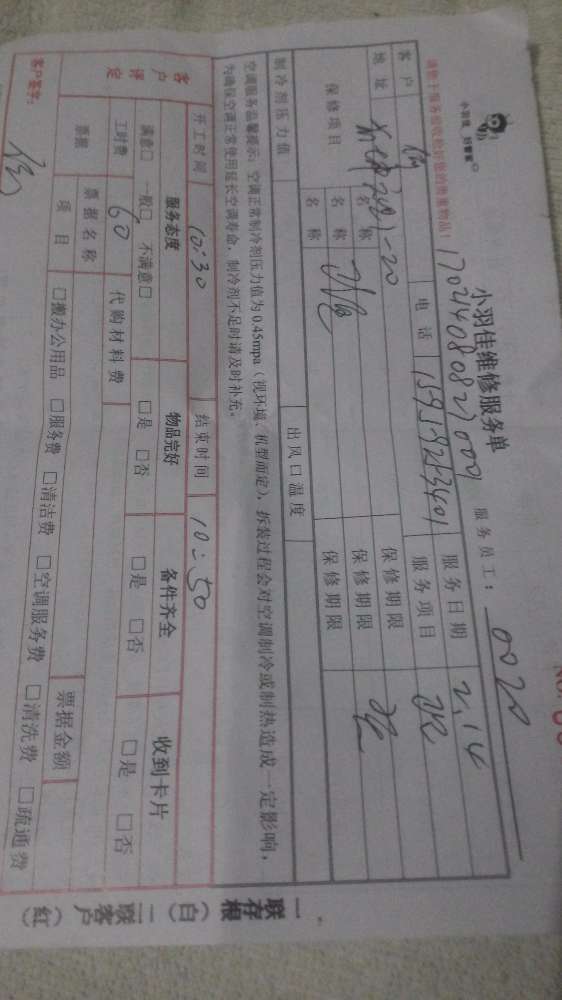 小羽佳 好管家
小羽佳维修服务单
请勤于服务验收检好您的贵重物品!
服务员工: 0020
客户 电话 15959253401 服务日期 2.14
地址 服务项目
保修项目 名称 保修期限
名称 保修期限
名称 保修期限
制冷剂压力值 出风口温度
空调服务温馨提示:空调正常制冷剂压力值为0.45mpa(视环境、机型而定),拆装过程会对空调制冷或制热造成一定影响,
为确保空调正常使用延长空调寿命,制冷剂不足时请及时补充。
开工时间 10:30 结束时间 10:50
客户评定 服务态度 物品完好 备件齐全 收到卡片
满意□ 一般□ 不满意□ □是 □否 □是 □否 □是 □否
工时费 60 代购材料费
票据 票据名称 票据金额
项目 □搬办公用品 □服务费 □清洁费 □空调服务费 □清洗费 □疏通费
客户签字:
一联存根(白) 二联客户(红)